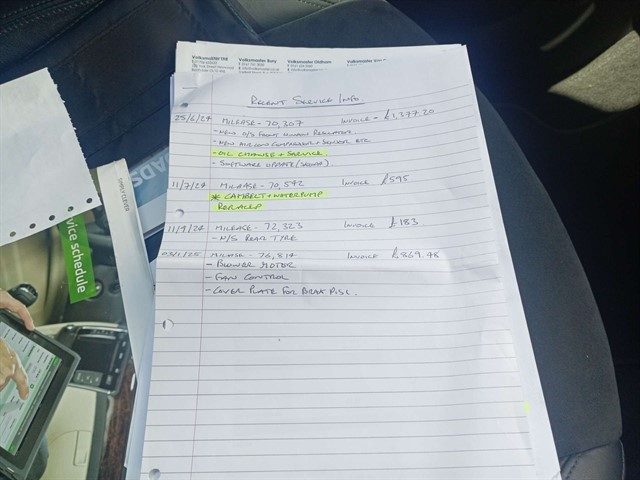 Volksmaster Bury
Volksmaster Oldham
RECENT SERVICE INFO
25/6/24 MILEAGE - 70,307 INVOICE - £1,377.20
- NEW O/S FRONT WINDOW REGULATOR
- NEW AIRCON COMPRESSOR + SENSOR ETC
- OIL CHANGE + SERVICE.
- SOFTWARE UPDATE (SKODA)
11/7/24 MILEAGE - 70,542 INVOICE £595
* CAMBELT + WATERPUMP
REPLACED
11/9/24 MILEAGE - 72,323 INVOICE £183
- N/S REAR TYRE
03/1/25 MILEAGE - 76,814 INVOICE £869.48
- BLOWER MOTOR
- FAN CONTROL
- COVER PLATE FOR BRAKE DISC.
SIMPLY CLEVER
ROADS
service schedule